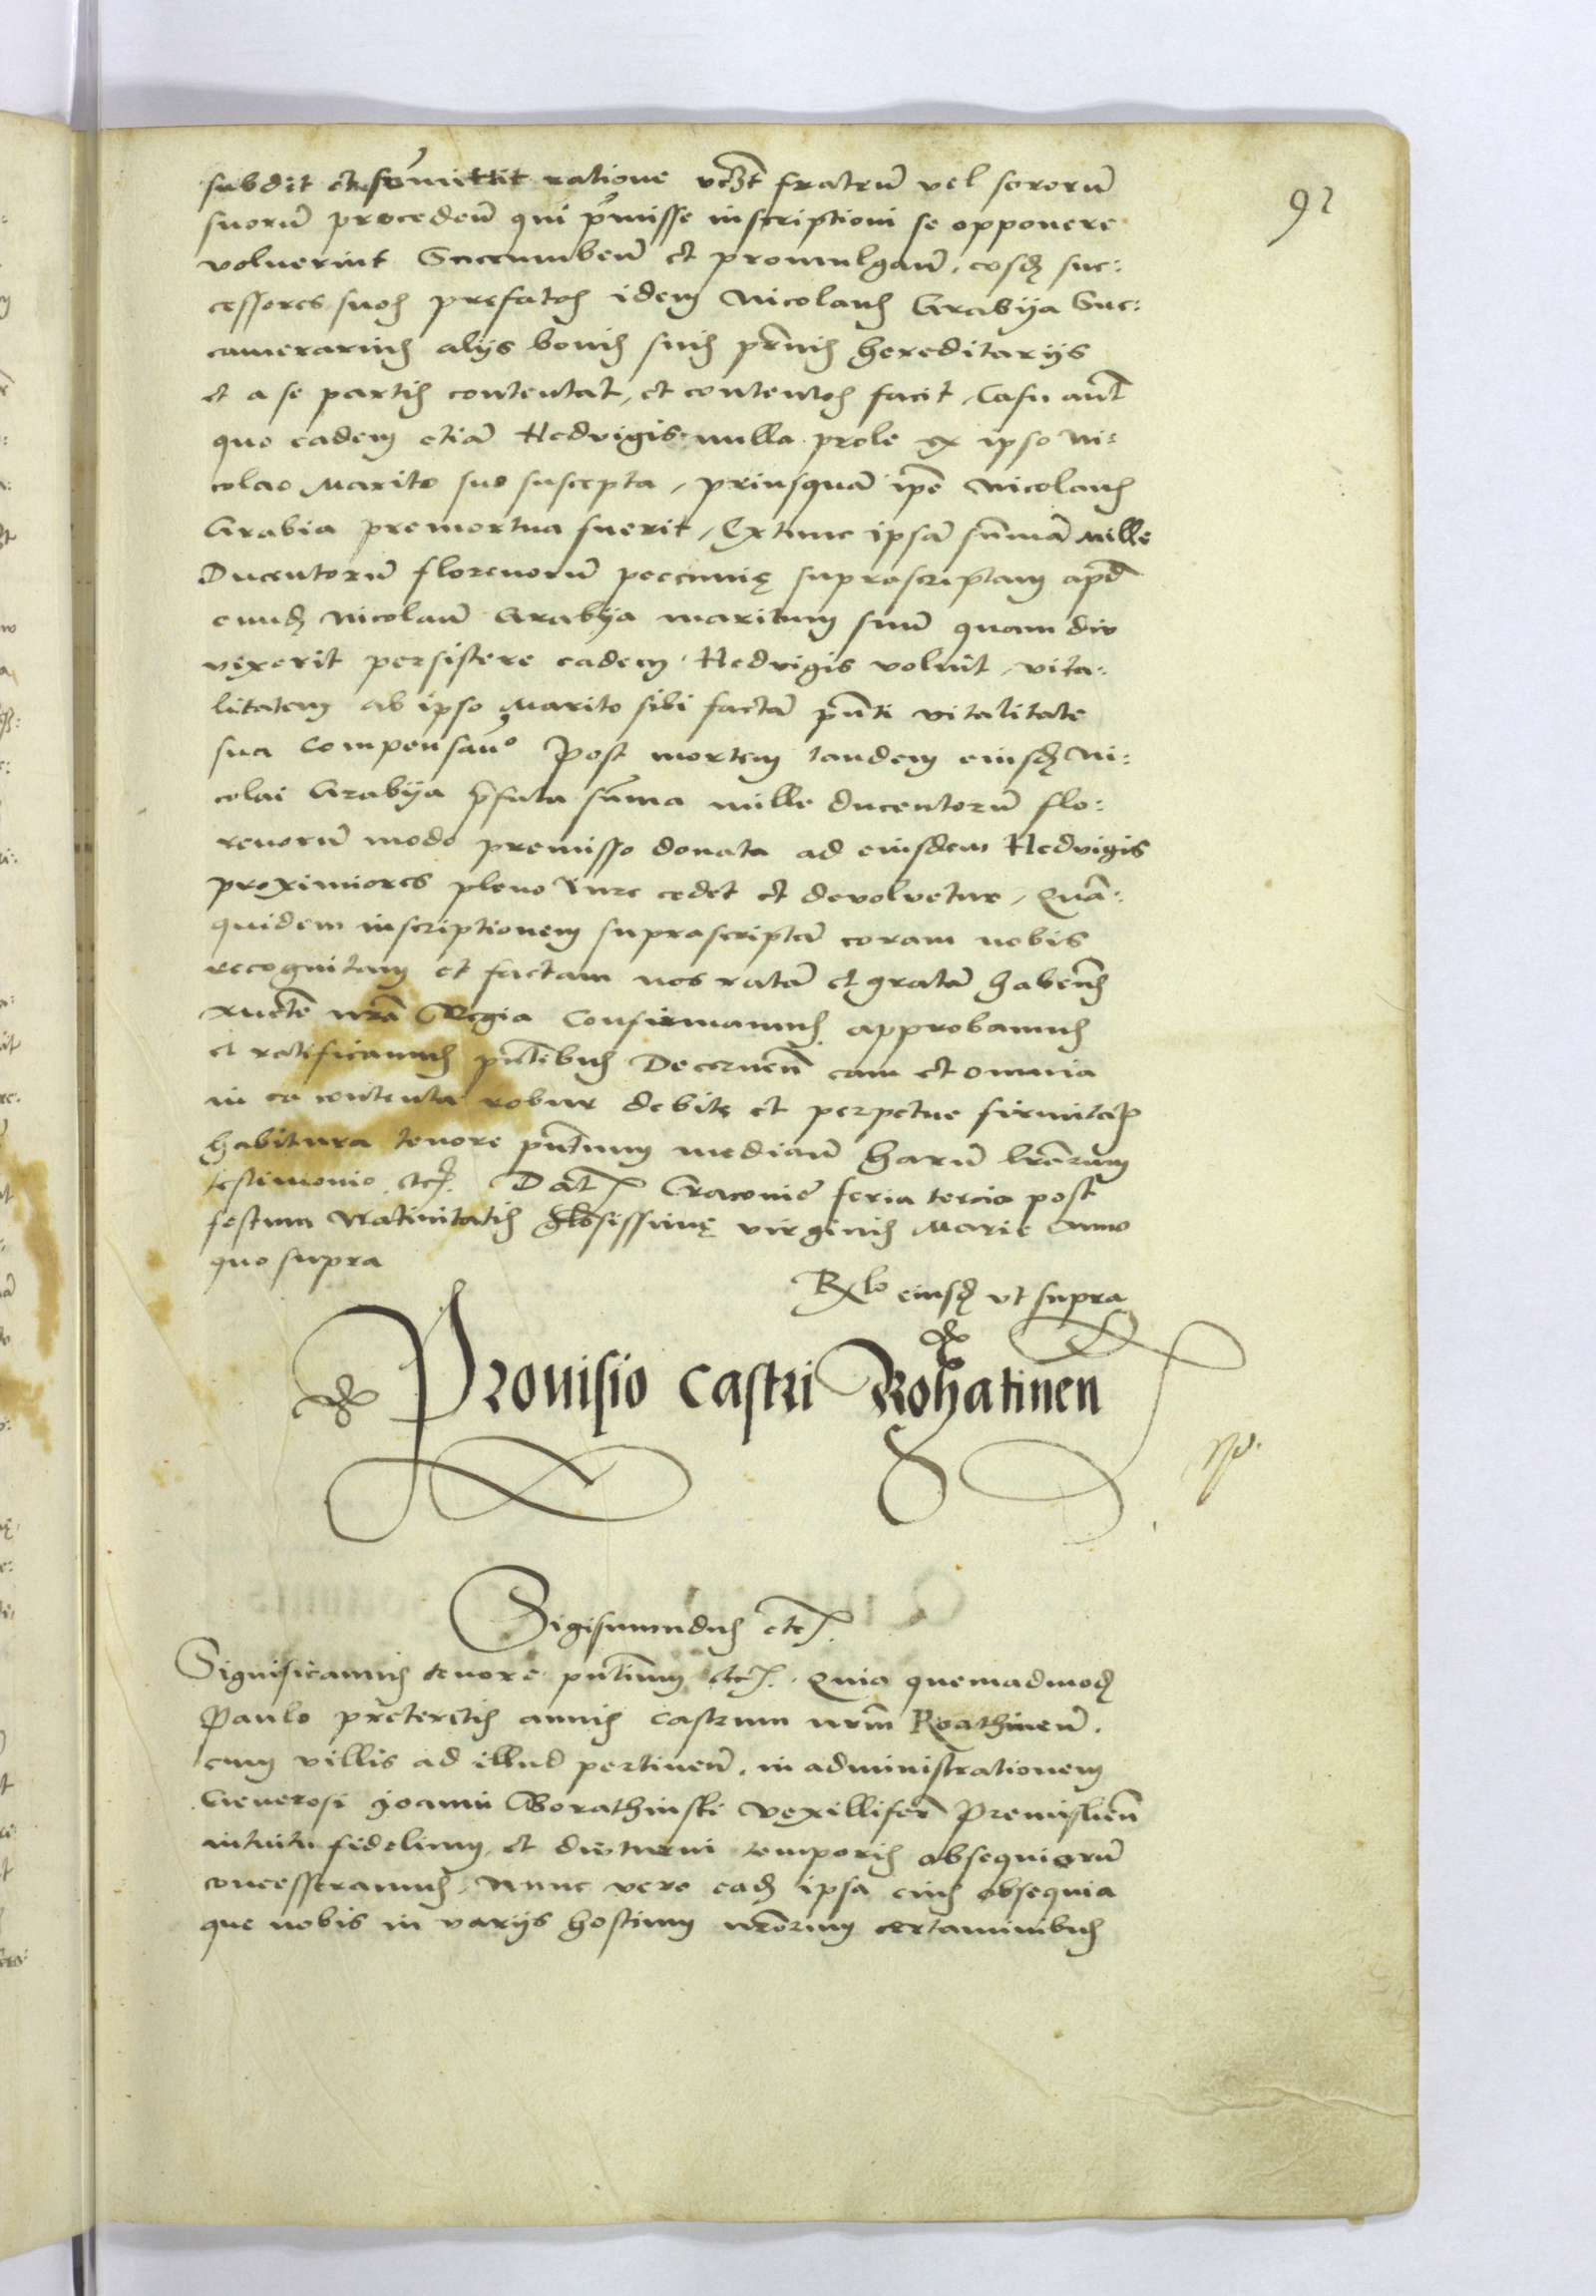 92
subdit et submittit ratione vczt fratrū vel sororū
suorū procedeñ qui p̄misse inscriptioni se opponere
voluerint Succumbeñ et promulgañ, eosdꝫ suc:
cessores suos prefatos idem Nicolaus Grabya Suc:
camerarius alijs bonis suis pr̄niis hereditarijs
et a se partis contentat, et contentos facit, Casu aūt
quo eadem etiā Hedvigis nulla prole ex ipso Ni:
colao Marito suo suscepta, priusquā ip̄e Nicolaus
Grabia premortua fuerit, Extunc ipsā sūmā Mille
Ducentorū florenorū peccunię suprascriptam apd̄
eundꝫ Nicolaū Grabya maritum suū quam diu
vixerit persistere eadem Hedvigis voluit, vita:
litatem ab ipso Marito sibi factā pn̄ti vitalitate
sua Compensan̄o Post mortem tandem eiusdꝫ Ni:
colai Grabya p̄fata sūma mille ducentorū flo:
renorū modo premisso donata ad eiusdem Hedvigis
proximiores pleno Iure cedet et devolvetur, Quā:
quidem inscriptionem suprascriptā coram nobis
recognitam et factam nos ratā et gratā haben̄s
Auctē nr̄a Regia Confirmamus approbamus
et ratificamus pn̄tibus Decerneñ eam et omnia
in ea contenta robur debitę et perpetue firmitatis
habitura tenore pn̄tium mediañ harū lr̄arum
testimonio etc. Dat Cracovie feria tercia post
festum Nativitatis Glosissimę virginis Marie Anno
quo supra
Rlo eiusdꝫ vt supra
Provisio castri Rohatinen
Sigismundus etc.
Significamus tenore pn̄tium etc. Quia quemadmodꝫ
Paulo preteritis annis Castrum nrm̄ Roathineñ.
cum villis ad illud pertineñ. in administrationem
Generosi Joanni Borathinski vexilliferi Premislieñ
intuitu fidelium et diuturni temporis obsequiorū
concesseramus, Nunc vero eadꝫ ipsa eius obsequia
que nobis in varijs hostium nr̄orum certaminibus